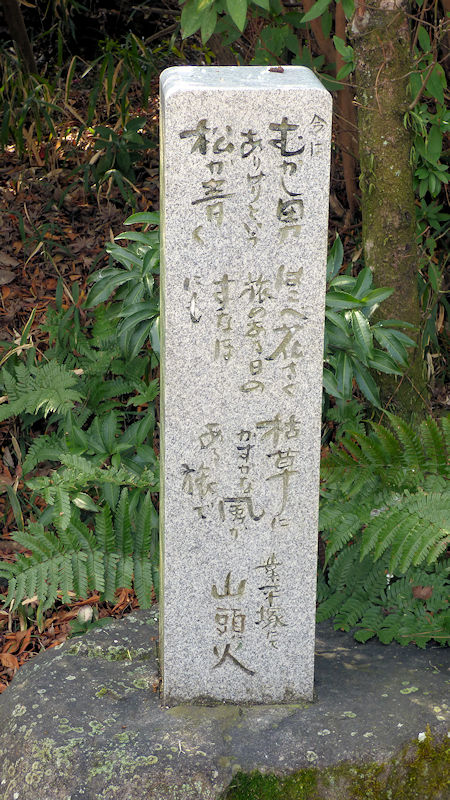 今に
むかし男
ありけりという
松が青く
はこべ花さく
旅のある日の
すなほ
にも
枯草に
かすかな風が
ある旅で
業平塚にて
山頭火